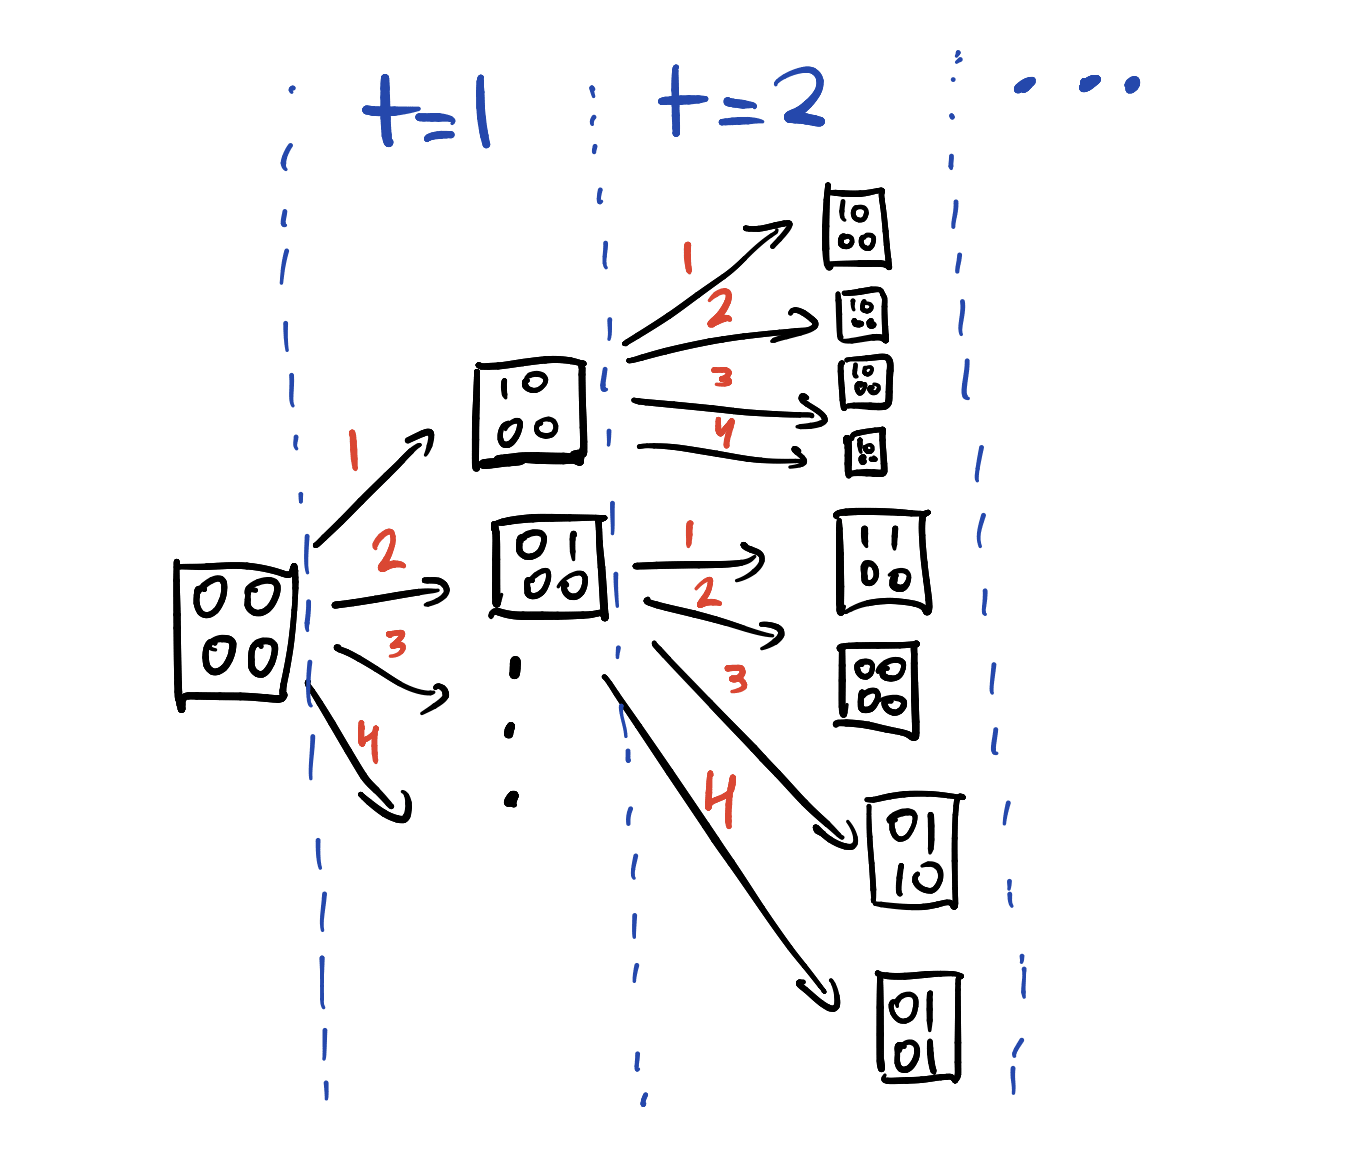 t=1 t=2 ...
1 0
0 0
1
2
3
4
1 0
0 0
1 0
0 0
1 0
0 0
0 0
0 0
1
2
3
4
1 0
0 0
0 1
0 0
1
2
3
4
1 1
0 0
0 0
0 0
0 1
1 0
0 1
0 1